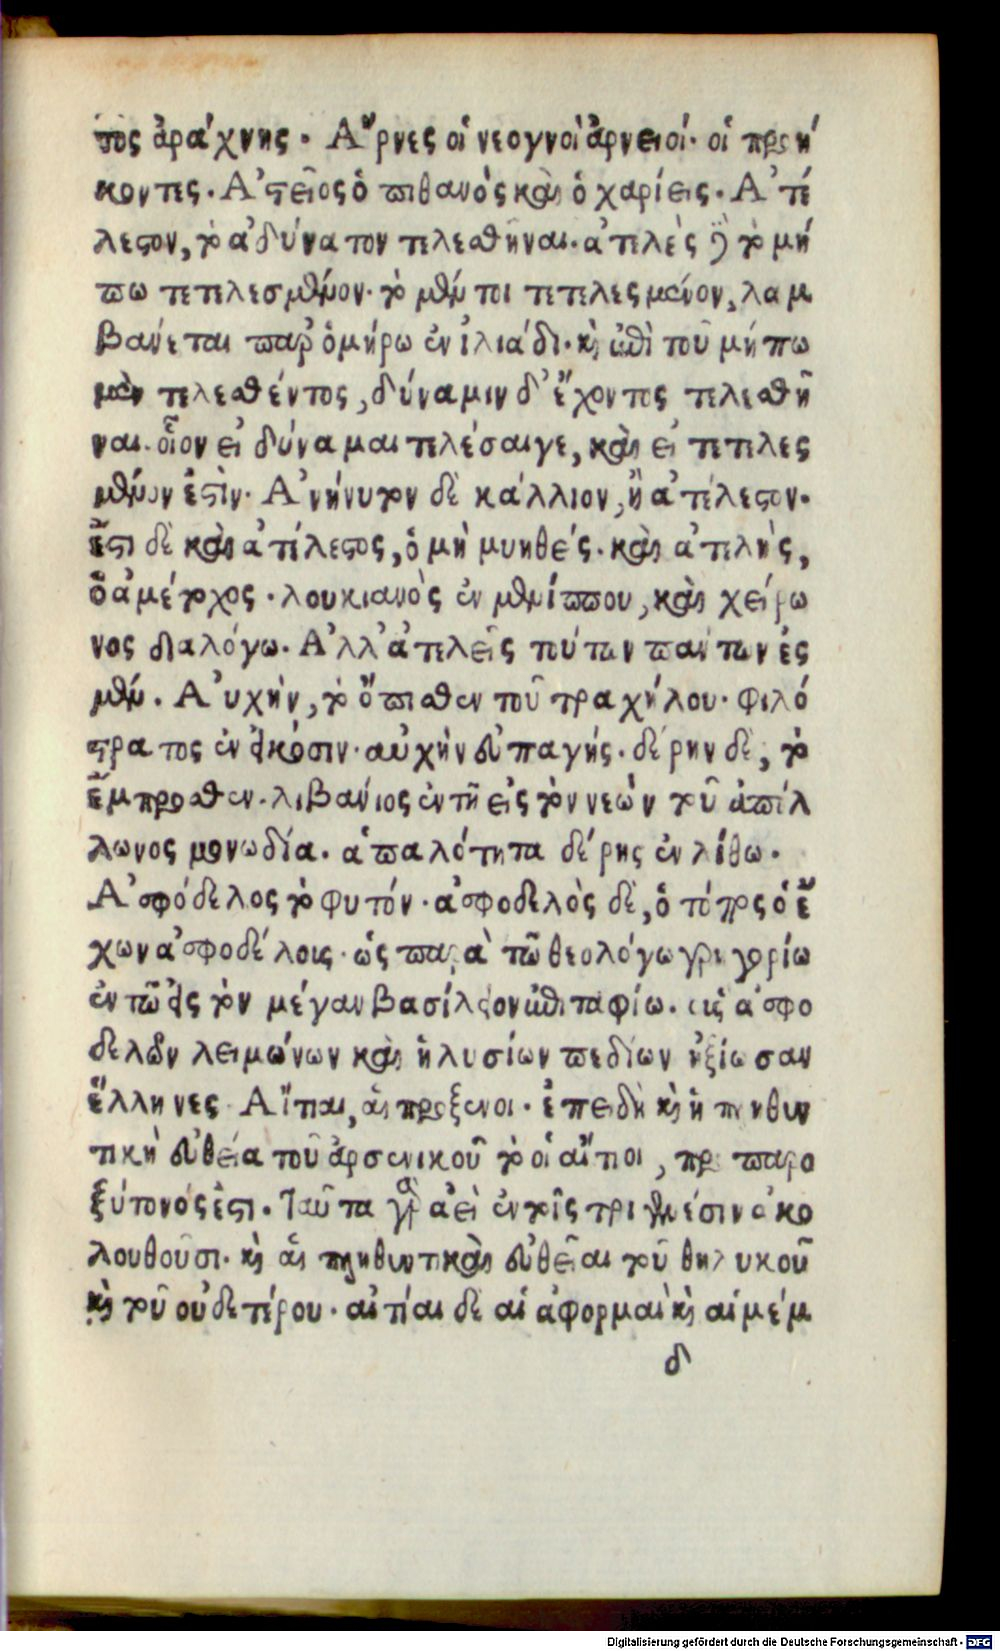 τος ἀράχνης. Ἄρνες οἱ νεογνοὶ ἀρνειοί. οἱ προή
κοντες. Ἀστεῖος ὁ πιθανὸς καὶ ὁ χαρίεις. Ἀτέ
λεστον, τὸ ἀδύνατον τελεσθῆναι. ἀτελὲς δὲ τὸ μή
πω τετελεσμένον. τὸ μέντοι τετελεσμένον, λαμ
βάνεται παρ' ὁμήρω ἐν ἰλιάδι. καὶ ἐπὶ τοῦ μήπω
μὲν τελεσθέντος, δύναμιν δ' ἔχοντος τελεσθῆ
ναι. οἷον εἰ δύναμαι τελέσαι γε, καὶ εἰ τετελεσ
μένον ἐστὶν. Ἀνήνυτον δὲ κάλλιον, ἢ ἀτέλεστον.
ἔστι δὲ καὶ ἀτέλεστος, ὁ μὴ μυηθείς. καὶ ἀτελὴς,
ὁ ἀμέτοχος. λουκιανὸς ἐν μενίππου, καὶ χείρω
νος διαλόγω. Ἀλλ' ἀτελεῖς τούτων πάντων ἐσ
μέν. Αὐχὴν, τὸ ὄπισθεν τοῦ τραχήλου. φιλό
στρατος ἐν εἰκόσιν. αὐχὴν εὐπαγής. δέρην δὲ, τὸ
ἔμπροσθεν. λιβάνιος ἐν τῆ εἰς τὸν νεὼν τοῦ ἀπόλ
λωνος μονωδία. ἁπαλότητα δέρης ἐν λίθω.
Ἀσφόδελος τὸ φυτόν. ἀσφοδελὸς δὲ, ὁ τόπος ὁ ἔ
χων ἀσφοδέλοις. ὡς παρὰ τῶ θεολόγω γρηγορίω
ἐν τῶ εἰς τὸν μέγαν βασίλειον ἐπιταφίω. εἰς ἀσφο
δελὸν λειμώνων καὶ ἠλυσίων πεδίων ἠξίωσαν
ἕλληνες. Αἴτιαι, αἱ πρόξενοι. ἐπειδὴ καὶ ἡ πληθυν
τικὴ εὐθεῖα τοῦ ἀρσενικοῦ τὸ οἱ αἴτιοι, προπαρο
ξύτονός ἐστι. Ταῦτα γὰρ ἀεὶ ἐν τοῖς τριγενέσιν ἀκο
λουθοῦσι. καὶ αἱ πληθυντικαὶ εὐθεῖαι τοῦ θηλυκοῦ
καὶ τοῦ οὐδετέρου. αἰτίαι δὲ αἱ ἀφορμαὶ καὶ αἱ μέμ
δ
Digitalisierung gefördert durch die Deutsche Forschungsgemeinschaft - DFG